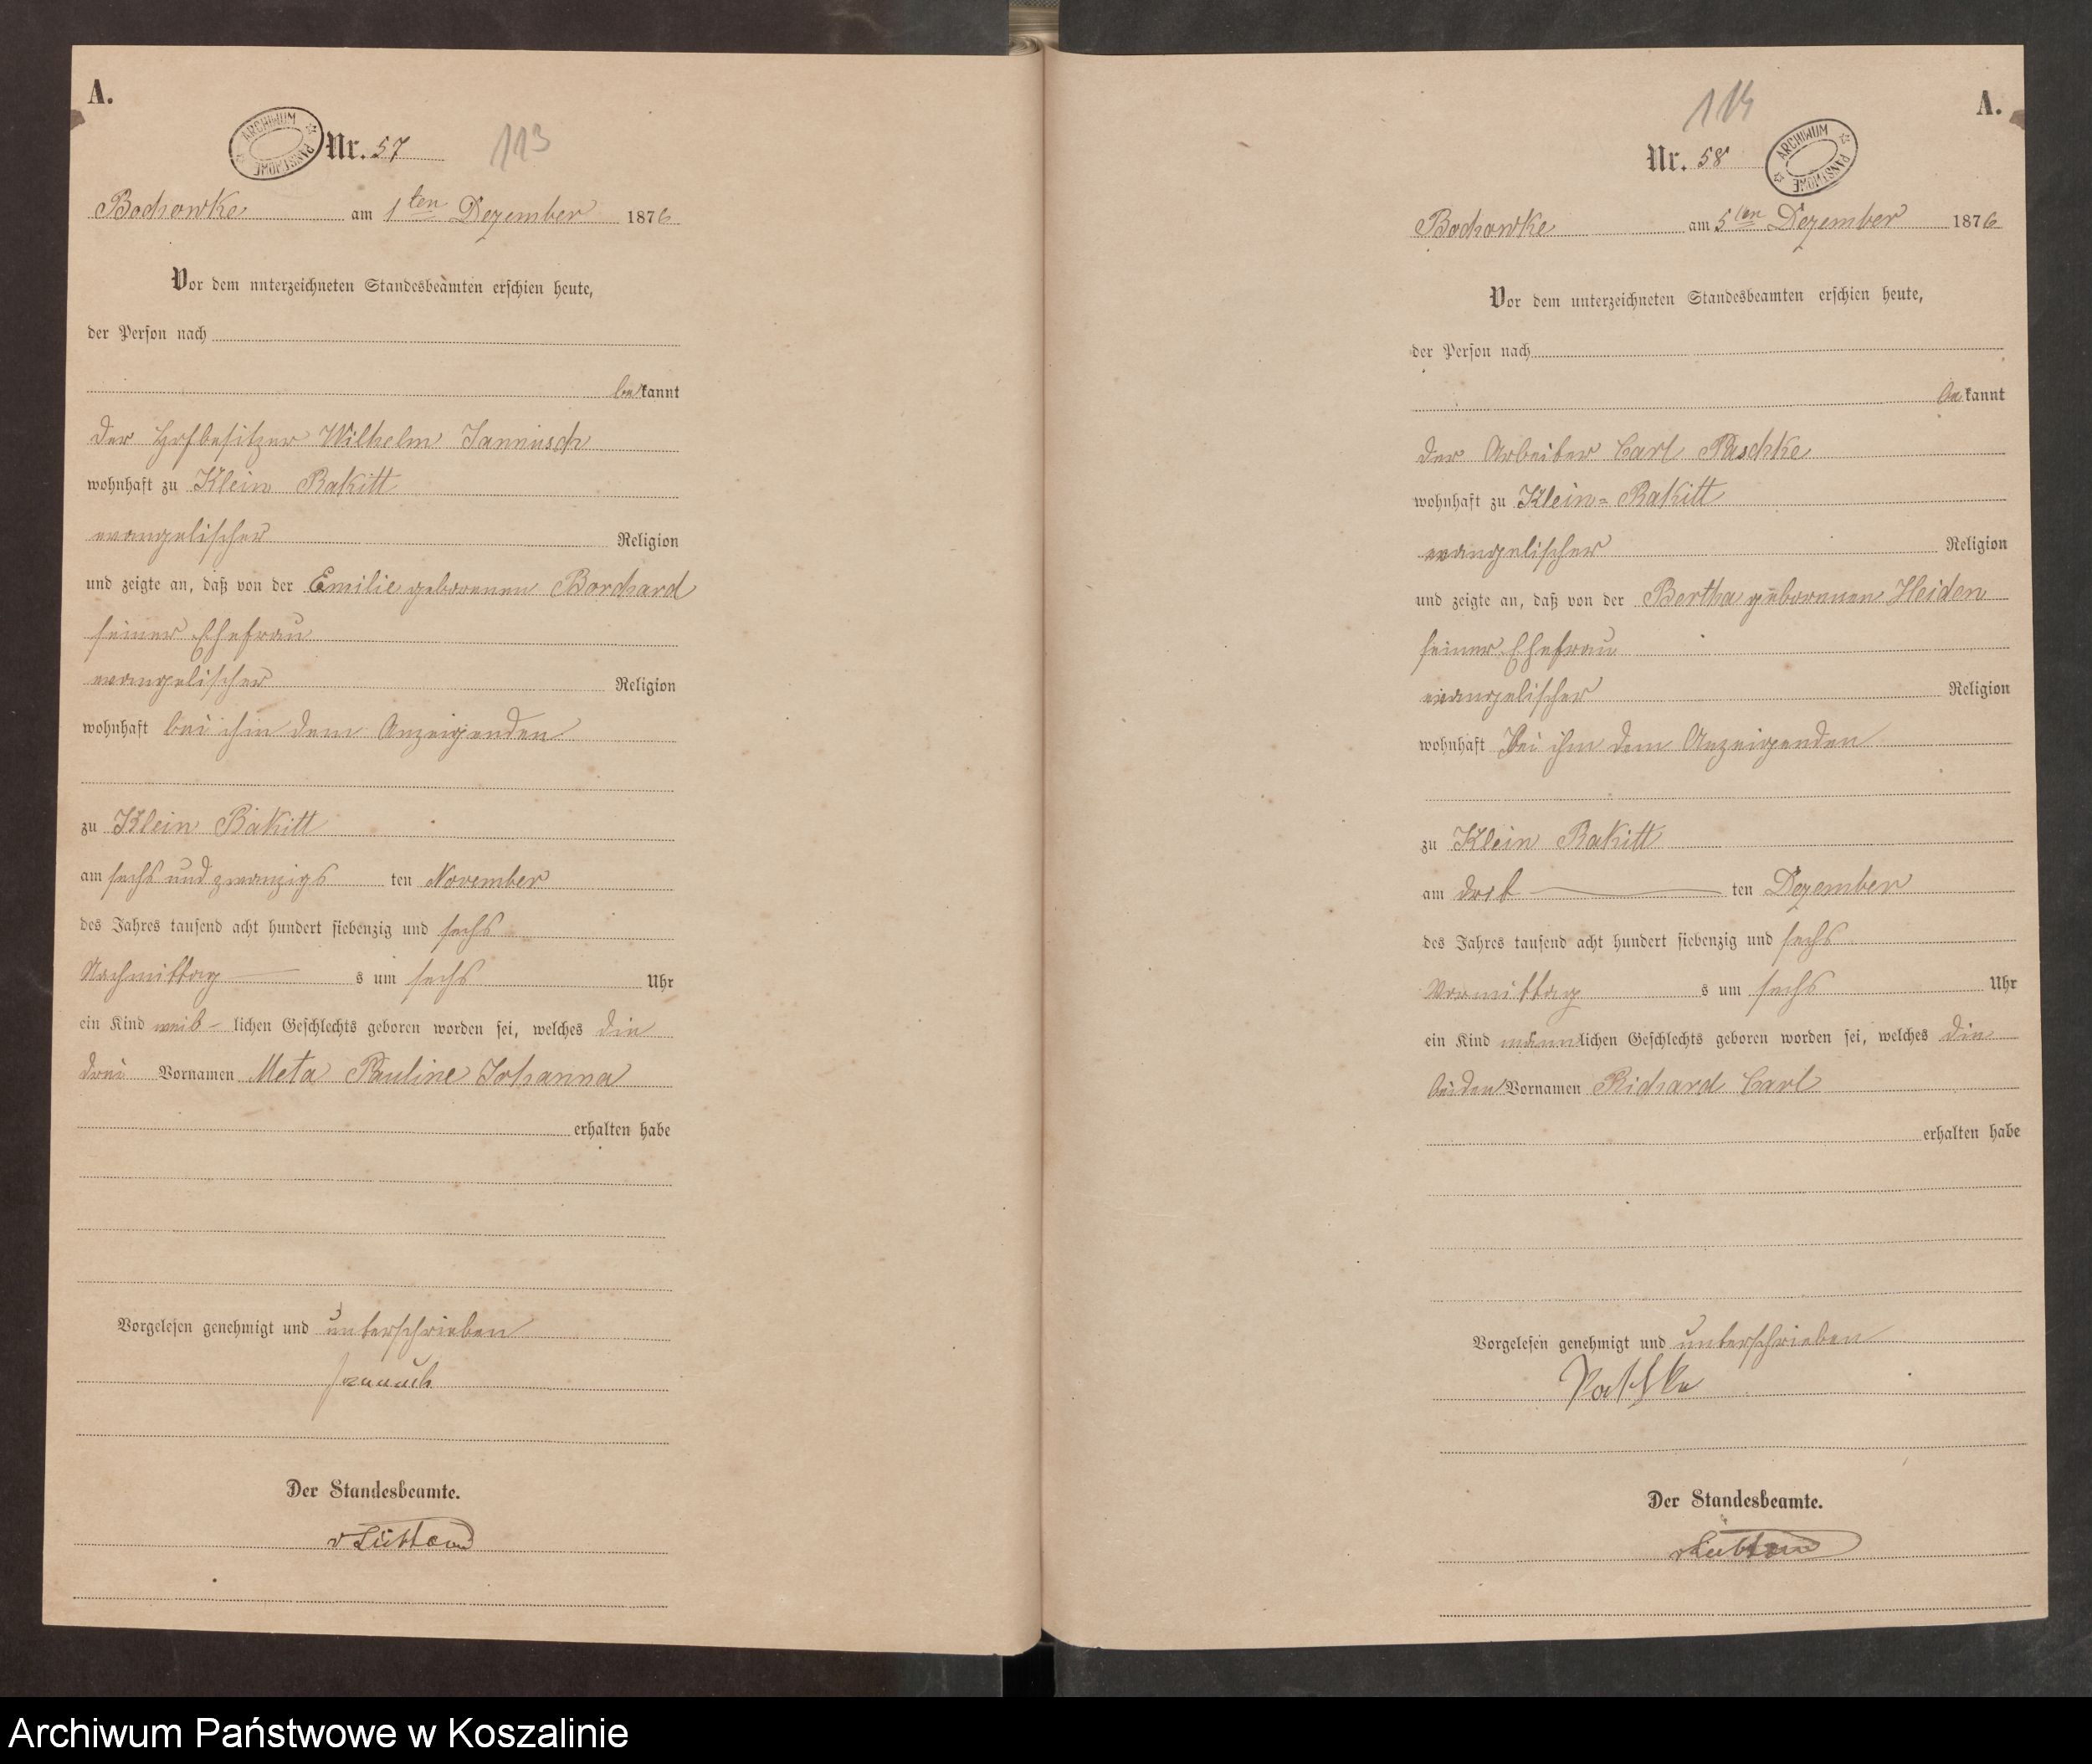 A.
ARCHIWUM PAŃSTWOWE
Nr. 57
113
Bochowke am 1ten Dezember 1876
Vor dem unterzeichneten Standesbeamten erschien heute,
der Person nach
bekannt
der Hofbesitzer Wilhelm Jannusch
wohnhaft zu Klein Rakitt
evangelischer Religion
und zeigte an, daß von der Emilie geborenen Borchard
seiner Ehefrau
evangelischer Religion
wohnhaft bei ihm dem Anzeigenden
zu Klein Rakitt
am sechs und zwanzigs ten November
des Jahres tausend acht hundert siebenzig und sechs
Nachmittag s um sechs Uhr
ein Kind weib- lichen Geschlechts geboren worden sei, welches die
drei Vornamen Meta Pauline Johanna
erhalten habe
Vorgelesen genehmigt und unterschrieben
Der Standesbeamte.
A.
114
Nr. 58
ARCHIWUM PAŃSTWOWE
Bochowke am 5ten Dezember 1876
Vor dem unterzeichneten Standesbeamten erschien heute,
der Person nach
bekannt
der Arbeiter Carl Paschke
wohnhaft zu Klein= Rakitt
evangelischer Religion
und zeigte an, daß von der Bertha geborenen Heiden
seiner Ehefrau
evangelischer Religion
wohnhaft bei ihm dem Anzeigenden
zu Klein Rakitt
am drit ten Dezember
des Jahres tausend acht hundert siebenzig und sechs
Vormittag s um sechs Uhr
ein Kind männlichen Geschlechts geboren worden sei, welches die
beiden Vornamen Richard Carl
erhalten habe
Vorgelesen genehmigt und unterschrieben
Paschke
Der Standesbeamte.
Archiwum Państwowe w Koszalinie